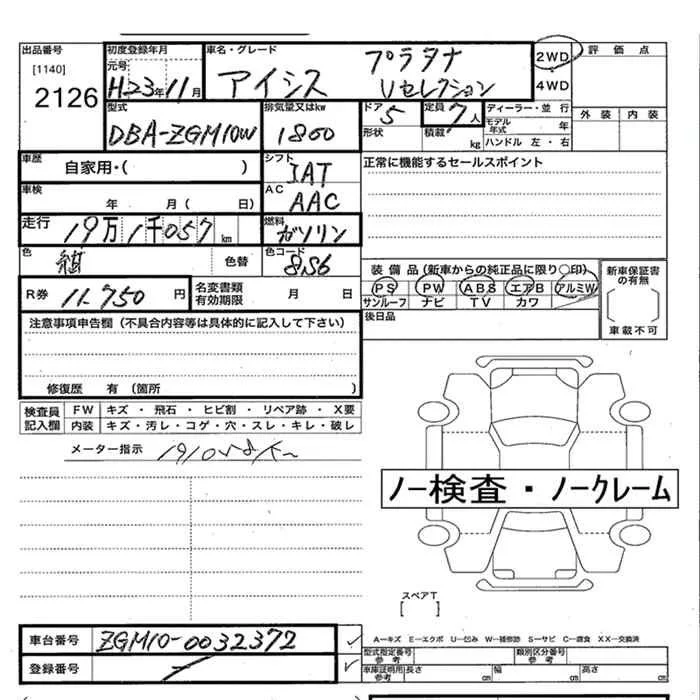 出品番号 初度登録年月 車名・グレード プラタナ 2WD 評価点
[1140] 元号 H23年11月 アイシス Vセレクション 4WD
2126 型式 排気量又はkw ドア 5 定員 7人 ディーラー・並行 外装 内装
DBA-ZGM10W 1800 形状 積載 kg モデル年式 年
ハンドル 左・右
車歴 自家用・( ) シフト IAT 正常に機能するセールスポイント
車検 年 月( 日) AC AAC
走行 19万1千057km 燃料 ガソリン
色 紺 色替 色コード 8S6 装備品(新車からの純正品に限り○印) 新車保証書の有無
R券 11.750円 名変書類有効期限 月 日 PS PW ABS エアB アルミW
サンルーフ ナビ TV カワ
注意事項申告欄(不具合内容等は具体的に記入して下さい) 後日品 車載不可
修復歴 有(箇所 )
検査員記入欄 FW キズ・飛石・ヒビ割・リペア跡・X要
内装 キズ・汚レ・コゲ・穴・スレ・キレ・破レ
メーター指示
ノー検査・ノークレーム
スペアT
[ ]
車台番号 ZGM10-0032372 A-キズ E-エクボ U-凹み W-補修跡 S-サビ C-腐食 XX-交換済
型式指定番号 参考 類別区分番号 参考
登録番号 車庫証明用 参考 長さ cm 幅 cm 高さ cm